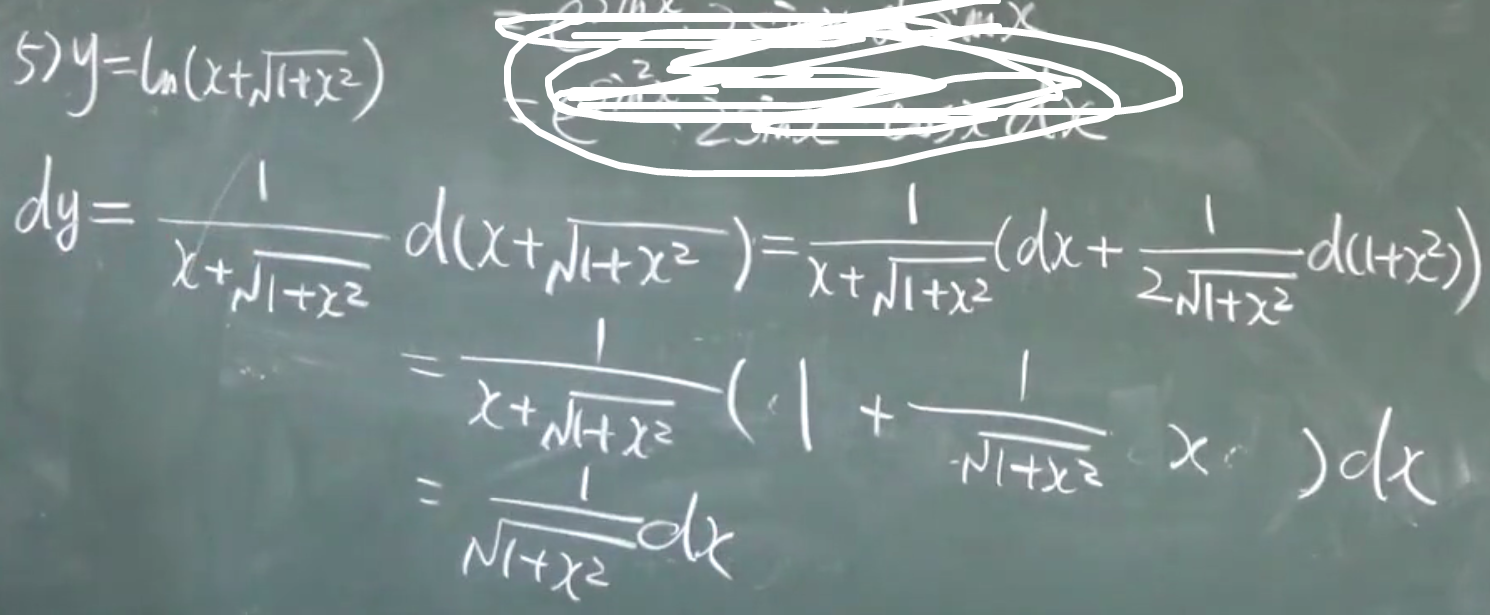 5) y=ln(x+√(1+x²))
dy= 1/(x+√(1+x²)) d(x+√(1+x²))= 1/(x+√(1+x²)) (dx+ 1/(2√(1+x²)) d(1+x²))
= 1/(x+√(1+x²)) (1 + 1/√(1+x²) x )dx
= 1/√(1+x²) dx